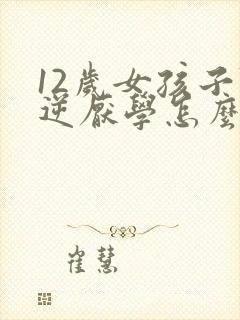 12歲女孩子
逆厭學怎麼
崔慧